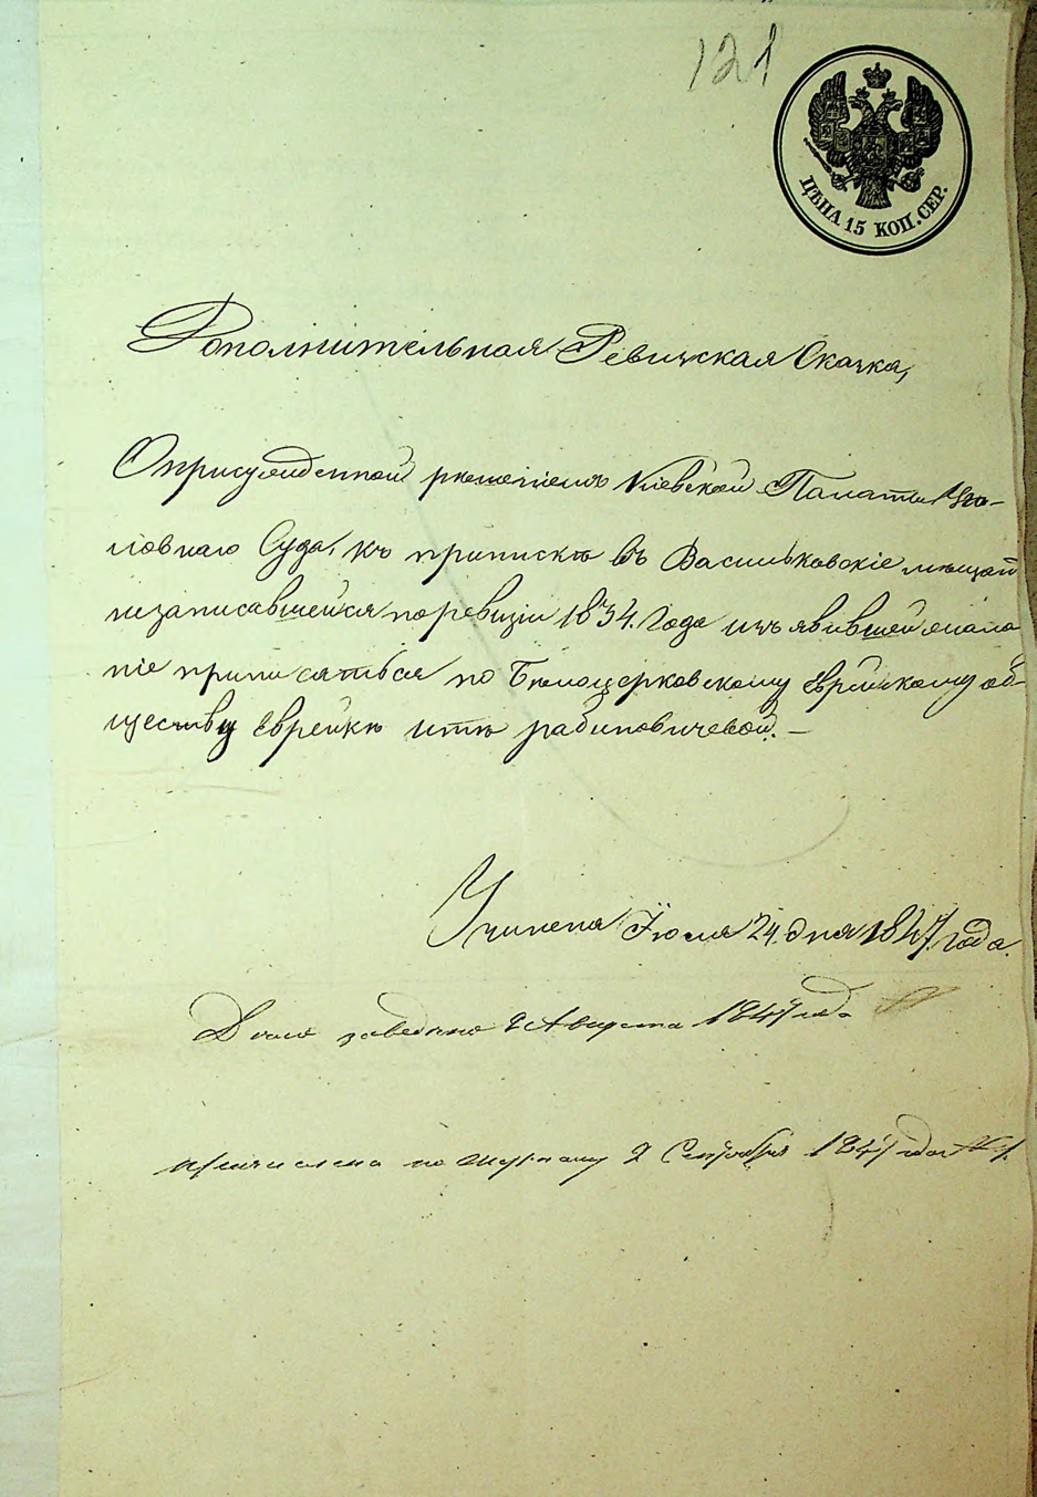 121
ЦѢНА 15 КОП. СЕР.
Дополнительная Ревизская Сказка,
Оприсужденной решениемъ Кіевской Палаты Уго-
ловнаго Суда, къ припискѣ въ Васильковскіе мѣщан
незаписавшейся поревизіи 1834. Года изъявившей желa
ніе приписаться по Бѣлоцерковскому Еврейскому об-
ществу Еврейкѣ Итѣ рабиновичевой. —
Учинена Іюля 24. дня 1847. года.
Дѣло заведено 2 Августа 1847 года
по журналу 2 Сентября 1847 года